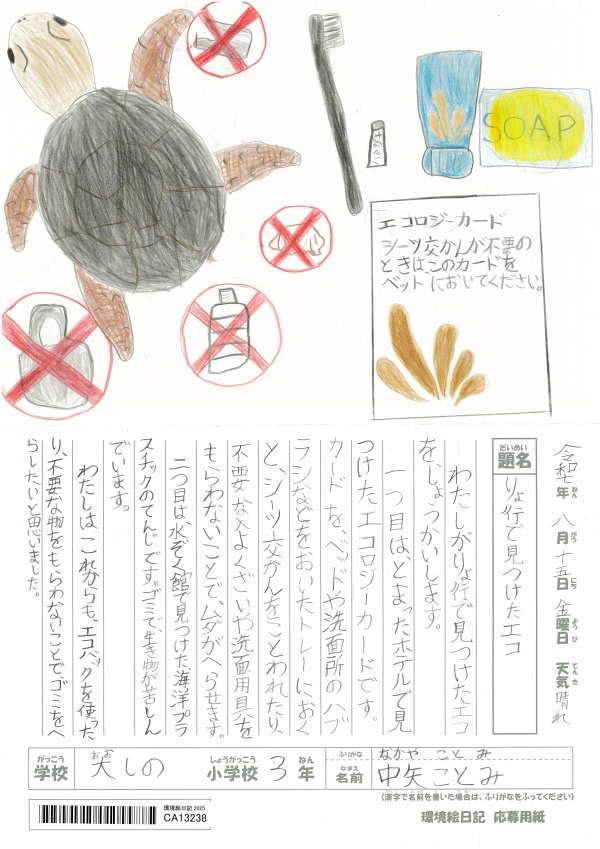 SOAP
エコロジーカード
シーツ交かんが不要の
ときは、このカードを
ベットにおいてください。
令和七年 八月十五日 金曜日 天気 晴れ
ねん がつ にち ようび てんき
だいめい
題名
りょ行で見つけたエコ
わたしがりょ行で見つけたエコ
を、しょうかいします。
一つ目は、とまったホテルで見
つけたエコロジーカードです。
カードを、ベッドや洗面所のハブ
ラシなどをおいたトレーにおく
と、シーツ交かんをことわれたり、
不要な入よくざいや洗面用具を
もらわないことで、ムダがへらせます。
二つ目は、水ぞく館で見つけた、海洋プラ
スチックのてんじです。ゴミで、生き物が苦しん
でいます。
わたしは、これからも、エコバックを使った
り、不要な物をもらわないことで、ゴミをへ
らしたいと思いました。
がっこう
学校
おお
大しの
しょうがっこう
小学校
3
ねん
年
ふりがな
なかや ことみ
なまえ
名前
中矢ことみ
(漢字で名前を書いた場合は、ふりがなをふってください)
環境絵日記 2025
CA13238
環境絵日記 応募用紙